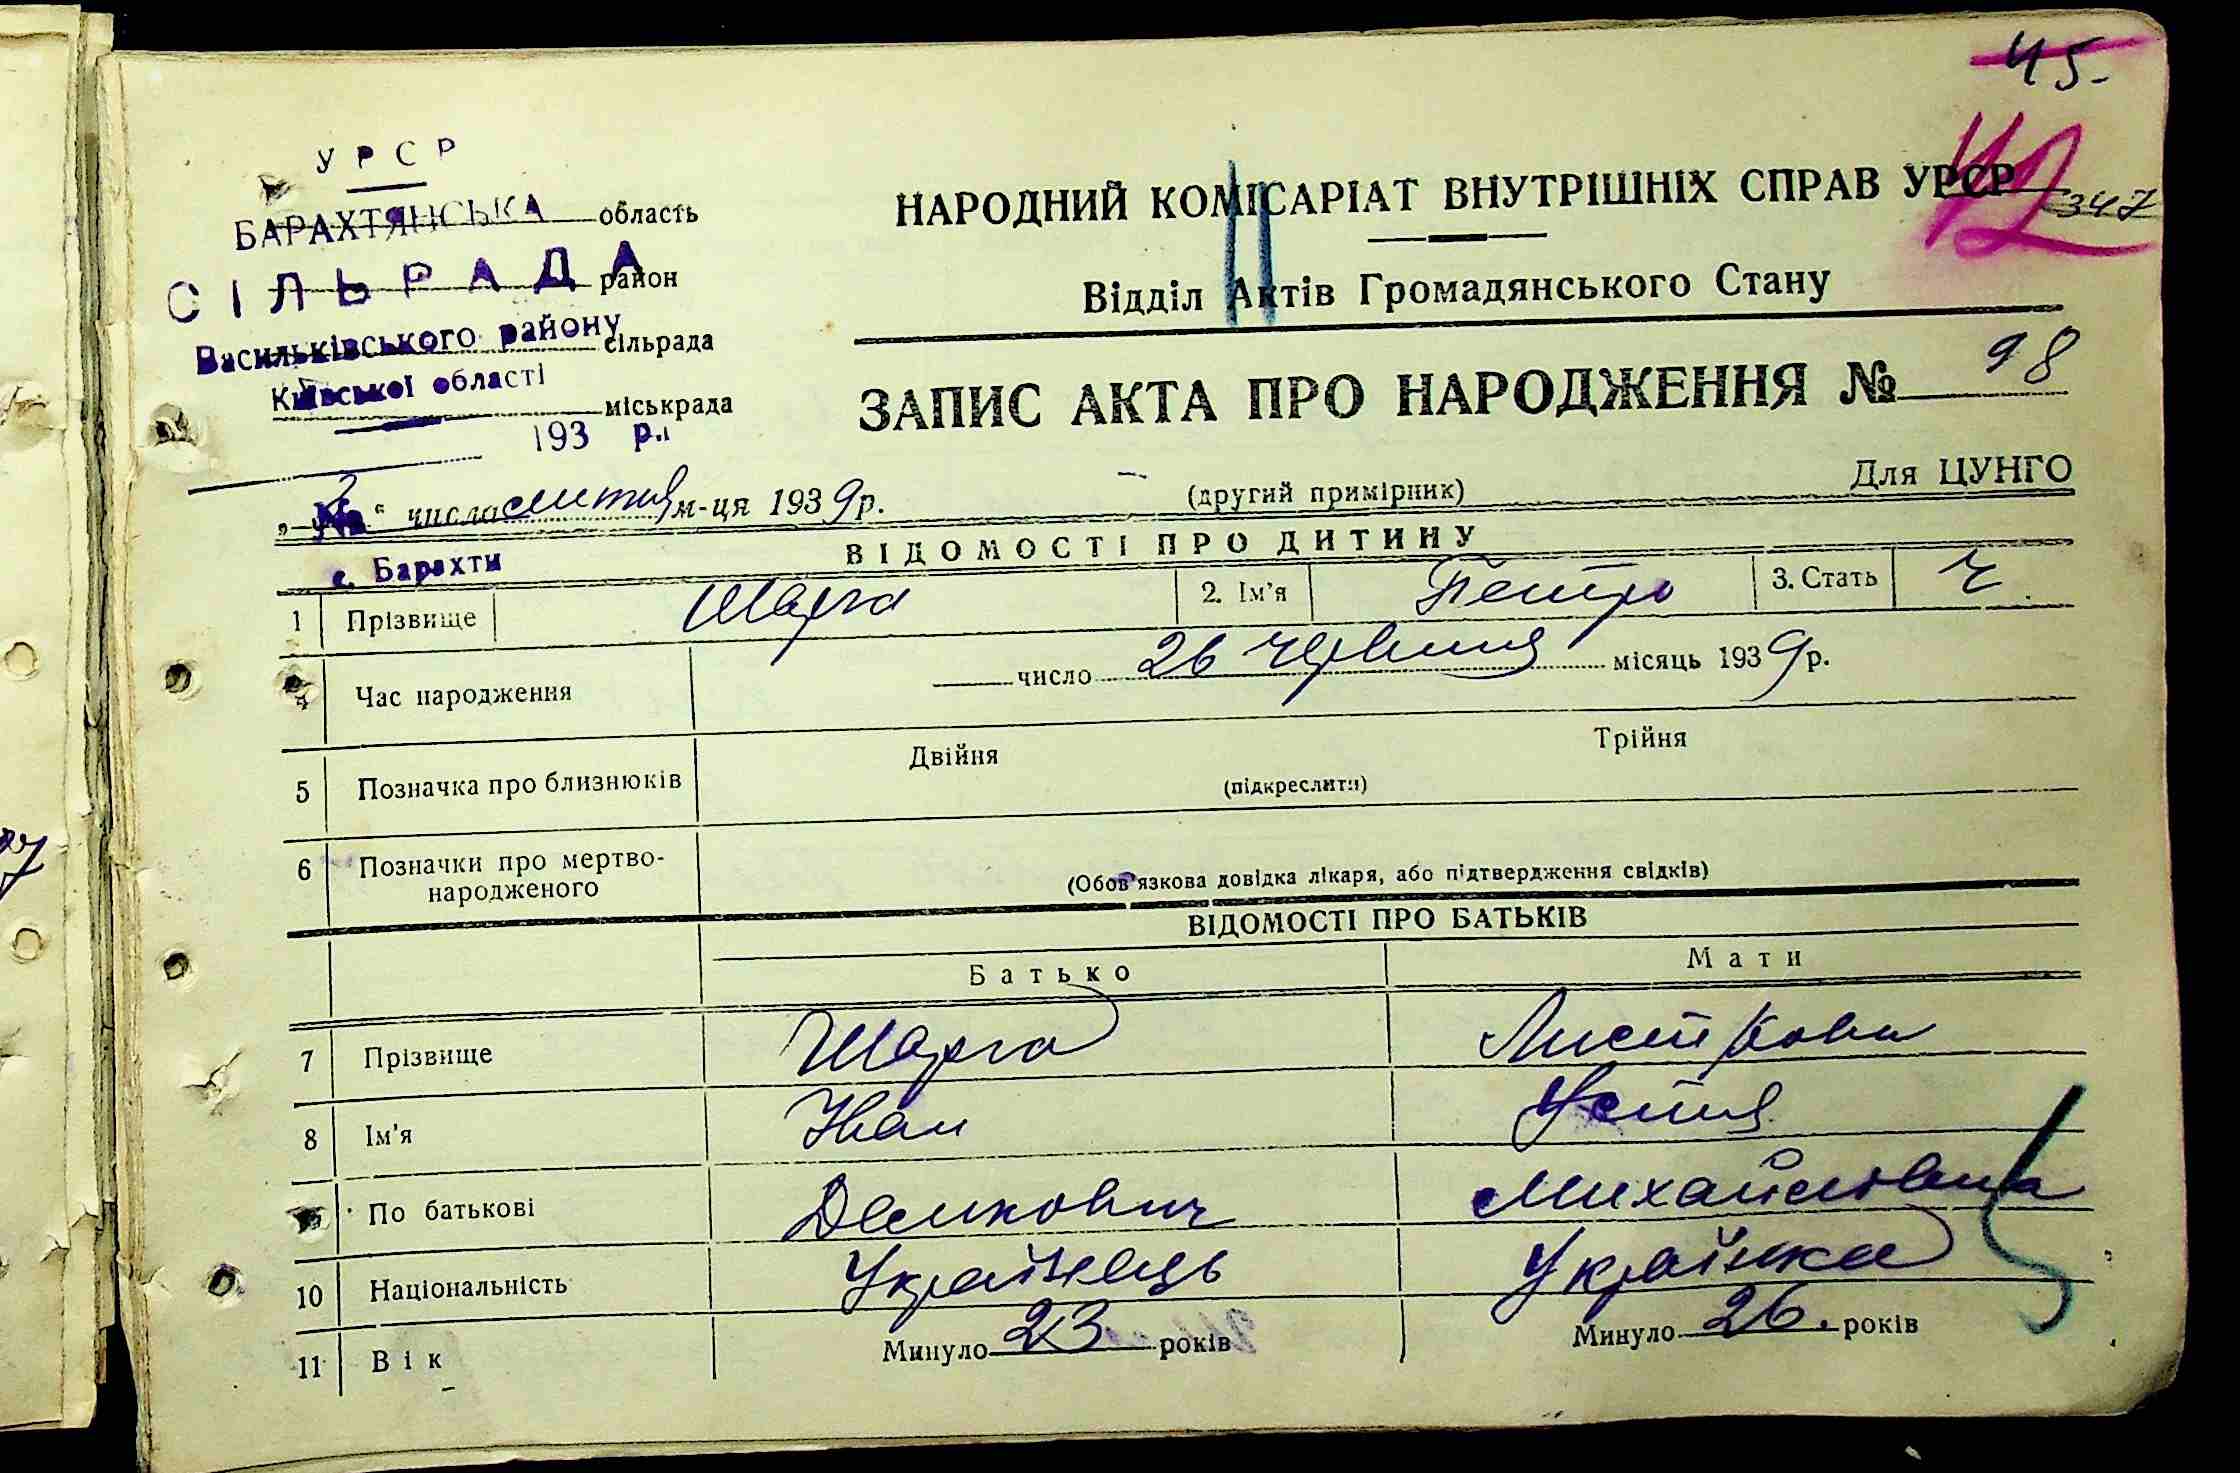 45.
42
347
УРСР
БАРАХТЯНСЬКА область
СІЛЬРАДА район
Васильківського району сільрада
Київської області
міськрада
193 р.
НАРОДНИЙ КОМІСАРІАТ ВНУТРІШНІХ СПРАВ УРСР
Відділ Актів Громадянського Стану
ЗАПИС АКТА ПРО НАРОДЖЕННЯ № 98
„2“ числа липня м-ця 1939 р.
(другий примірник)
Для ЦУНГО
№
с. Барахти
ВІДОМОСТІ ПРО ДИТИНУ
1 Прізвище Шарга 2. Ім'я Петро 3. Стать ч
4 Час народження число 26 червня місяць 1939 р.
5 Позначка про близнюків Двійня Трійня
(підкреслити)
6 Позначки про мертво-
народженого
(Обов'язкова довідка лікаря, або підтвердження свідків)
ВІДОМОСТІ ПРО БАТЬКІВ
Батько Мати
7 Прізвище Шарга
8 Ім'я Іван Устя
По батькові Демкович Михайлівна
10 Національність Українець Українка
11 Вік Минуло 23 років Минуло 26. років